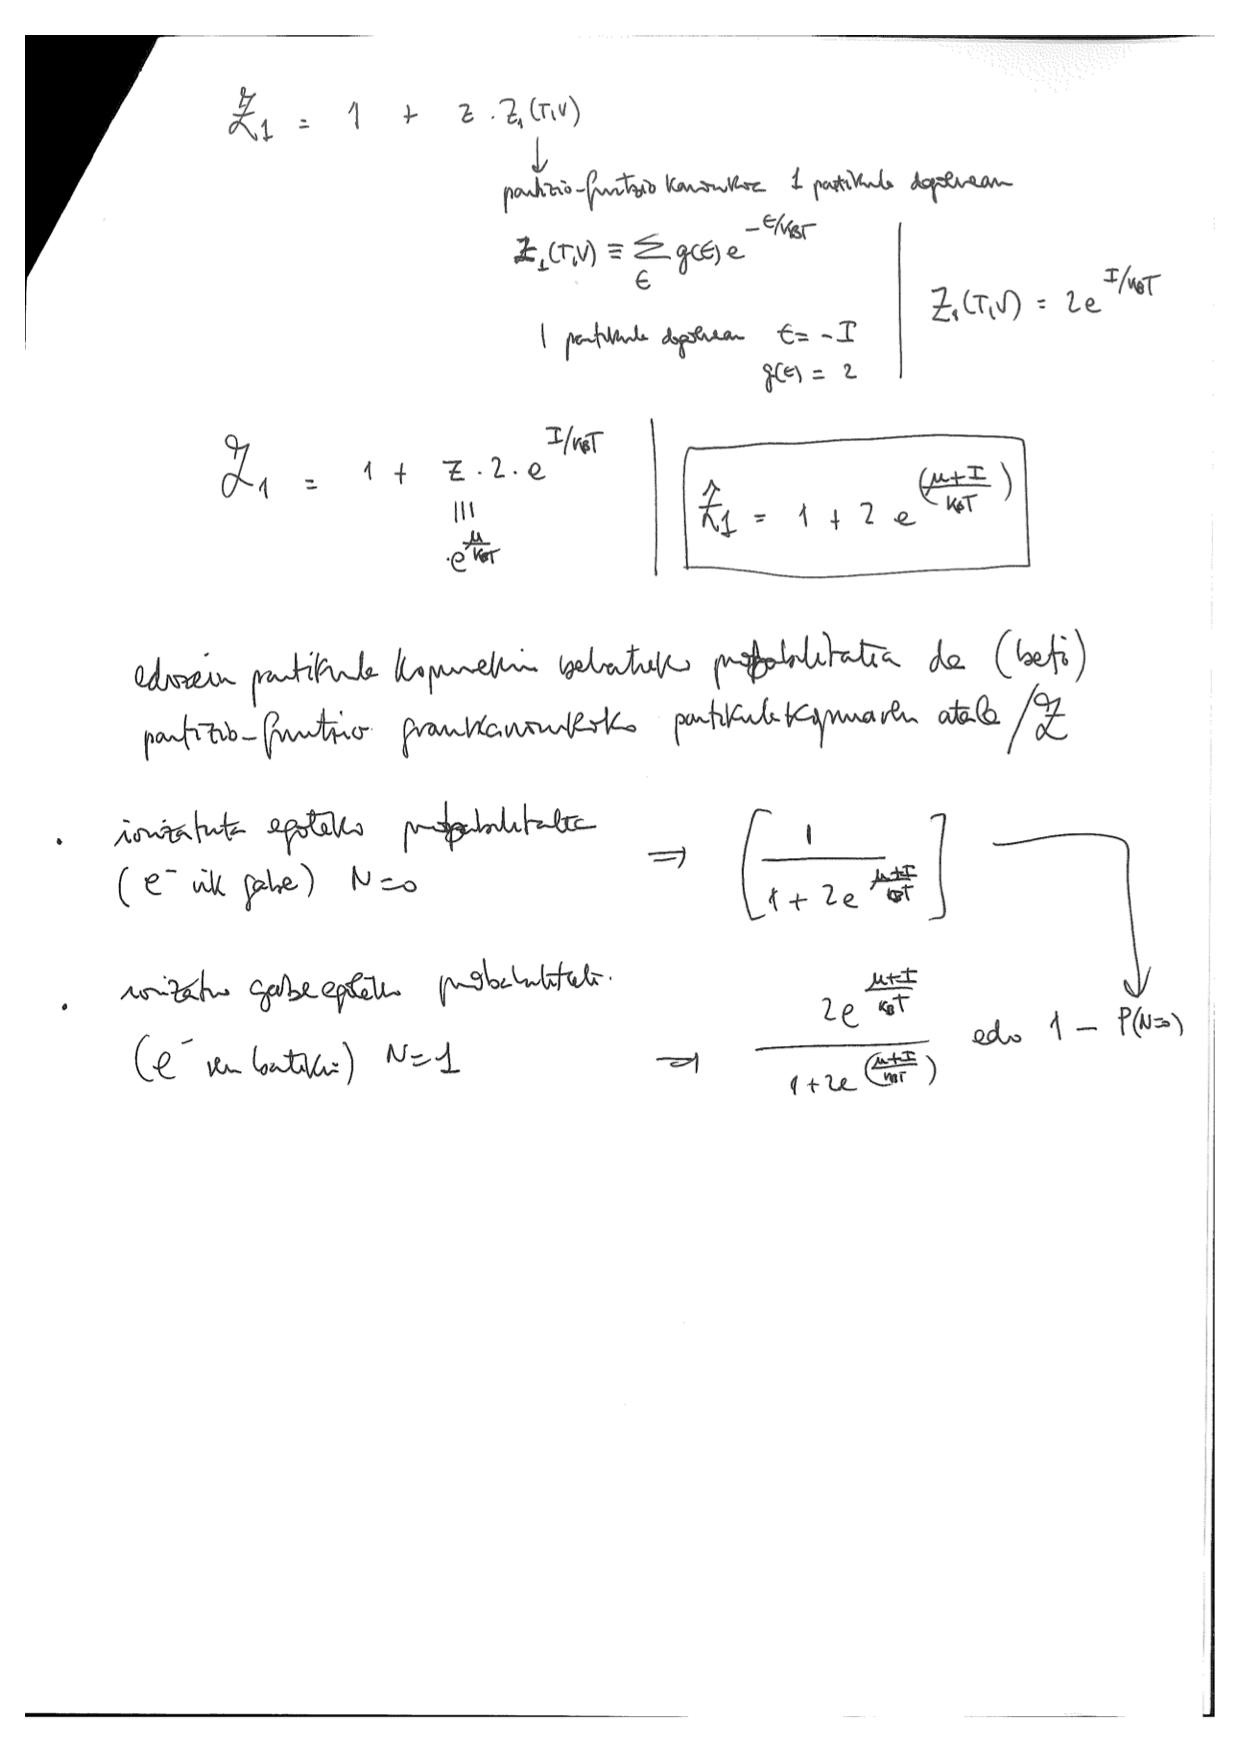 𝒵₁ = 1 + z · Z₁(T,V)
↓
partizio-funtzio kanonikoa 1 partikula dagoenean
Z₁(T,V) ≡ Σ_ϵ g(ϵ) e^{-ϵ/k_BT}
Z₁(T,V) = 2e^{I/k_BT}
1 partikula dagoenean ϵ = -I
g(ϵ) = 2
𝒵₁ = 1 + z · 2 · e^{I/k_BT}
≡ e^{μ/k_BT}
𝒵₁ = 1 + 2 e^{(μ+I/k_BT)}
edozein partikula kopurekin bateko probabilitatea da (beti)
partizio-funtzio grankanonikoko partikula kopuruaren atala / 𝒵
· ionizatuta egoteko probabilitatea
(e⁻ik gabe) N=0 ⇒ [1 / (1 + 2e^{μ+I/k_BT})]
· ionizatu gabe egoteko probabilitatea.
(e⁻ batekin) N=1 ⇒ 2e^{μ+I/k_BT} / (1+2e^{(μ+I/k_BT)}) edo 1 - P(N=0)